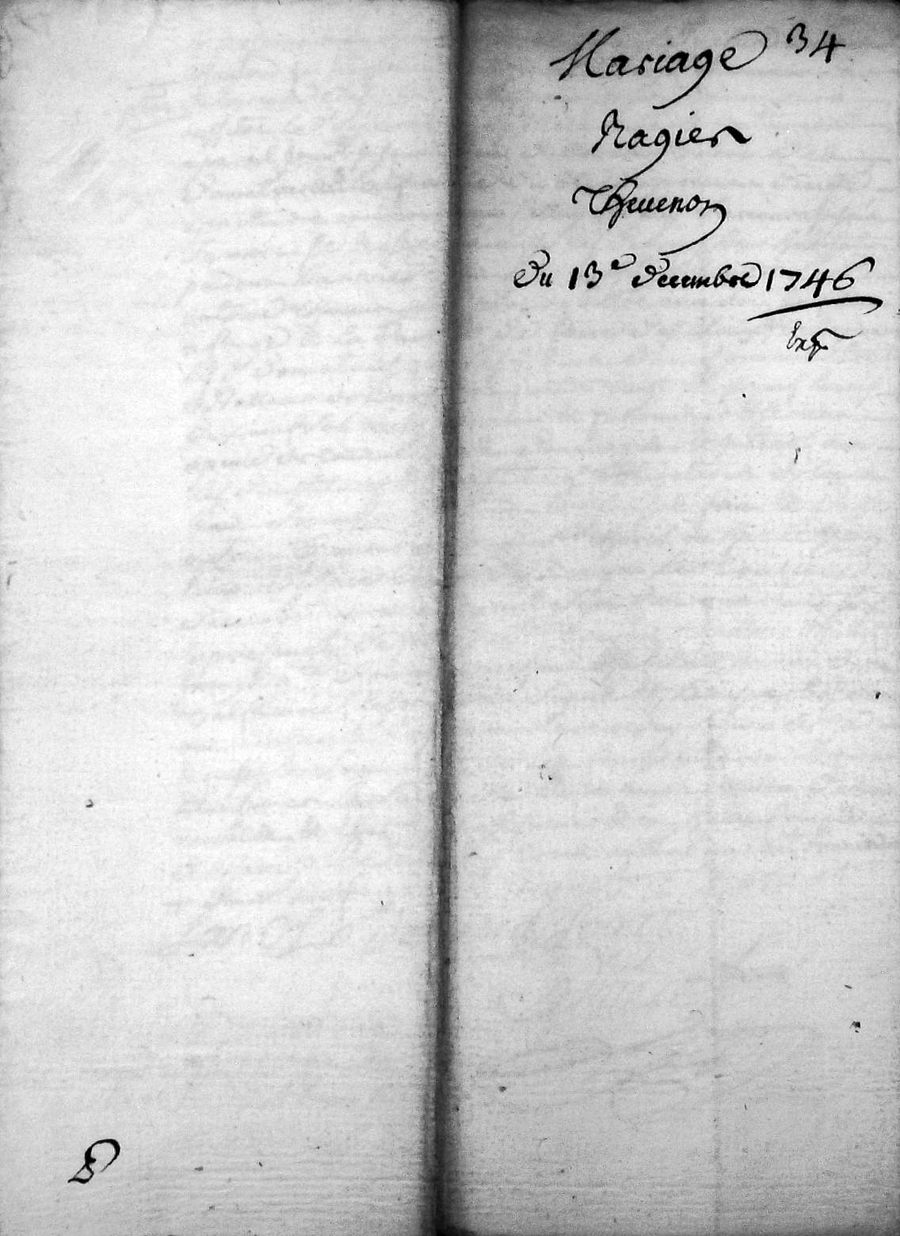 Mariage 34
Ragier
Thevenon
Du 13e decembre 1746